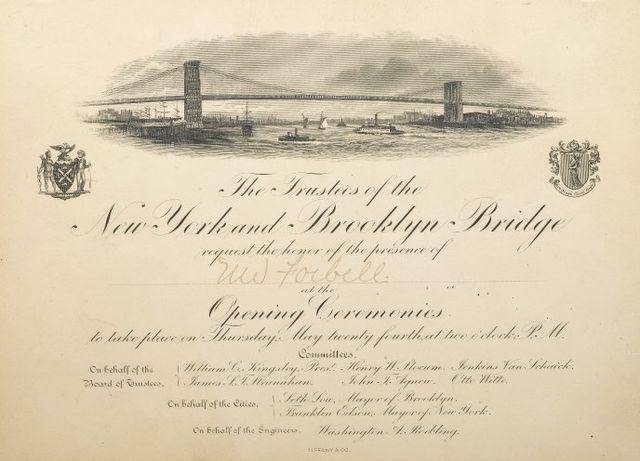 The Trustees of the
New York and Brooklyn Bridge
request the honor of the presence of
Forbell
at the
Opening Ceremonies
to take place on Thursday, May twenty fourth, at two o'clock, P.M.
Committees.
On behalf of the Board of Trustees. { William C. Kingsley, Pres.t Henry W. Slocum. Jenkins Van Schaick.
James S.T. Stranahan. John T. Agnew. Otto Witte.
On behalf of the Cities, { Seth Low, Mayor of Brooklyn.
Franklin Edson, Mayor of New York.
On behalf of the Engineers. Washington A. Roebling.
TIFFANY & CO.